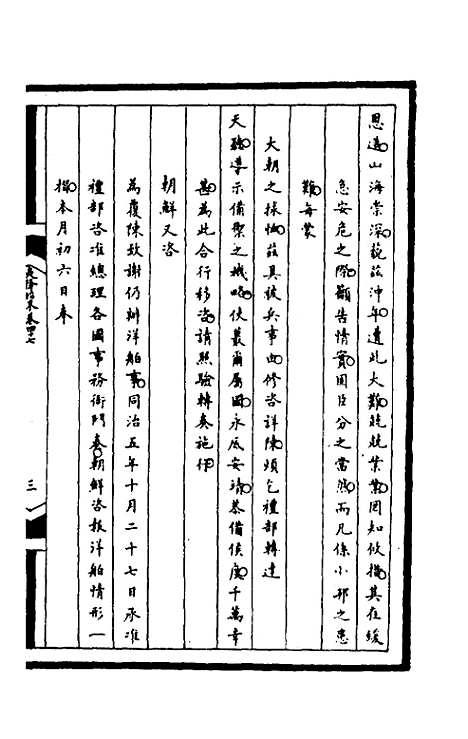 恩遠山海崇深藐茲沖年遭此大難兢兢業業罔知攸措其在緩
急安危之際籲告情實固臣分之當然而凡係小邦之患
難每蒙
大朝之採恤茲具被兵事由修咨詳陳煩乞禮部轉達
天聽導示備禦之機略使蕞爾屬國永底安靖恭備侯度千萬幸
甚為此合行移咨請照驗轉奏施行
朝鮮又咨
為覆陳致謝仍辦洋舶事同治五年十月二十七日承准
禮部咨准總理各國事務衙門奏朝鮮咨報洋舶情形一
摺本月初六日奉
夷務始末卷四七
三